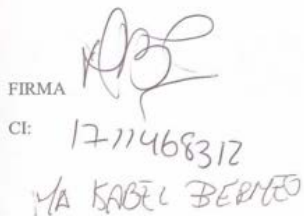 FIRMA
CI: 1711468312
MA ISABEL BERMEO